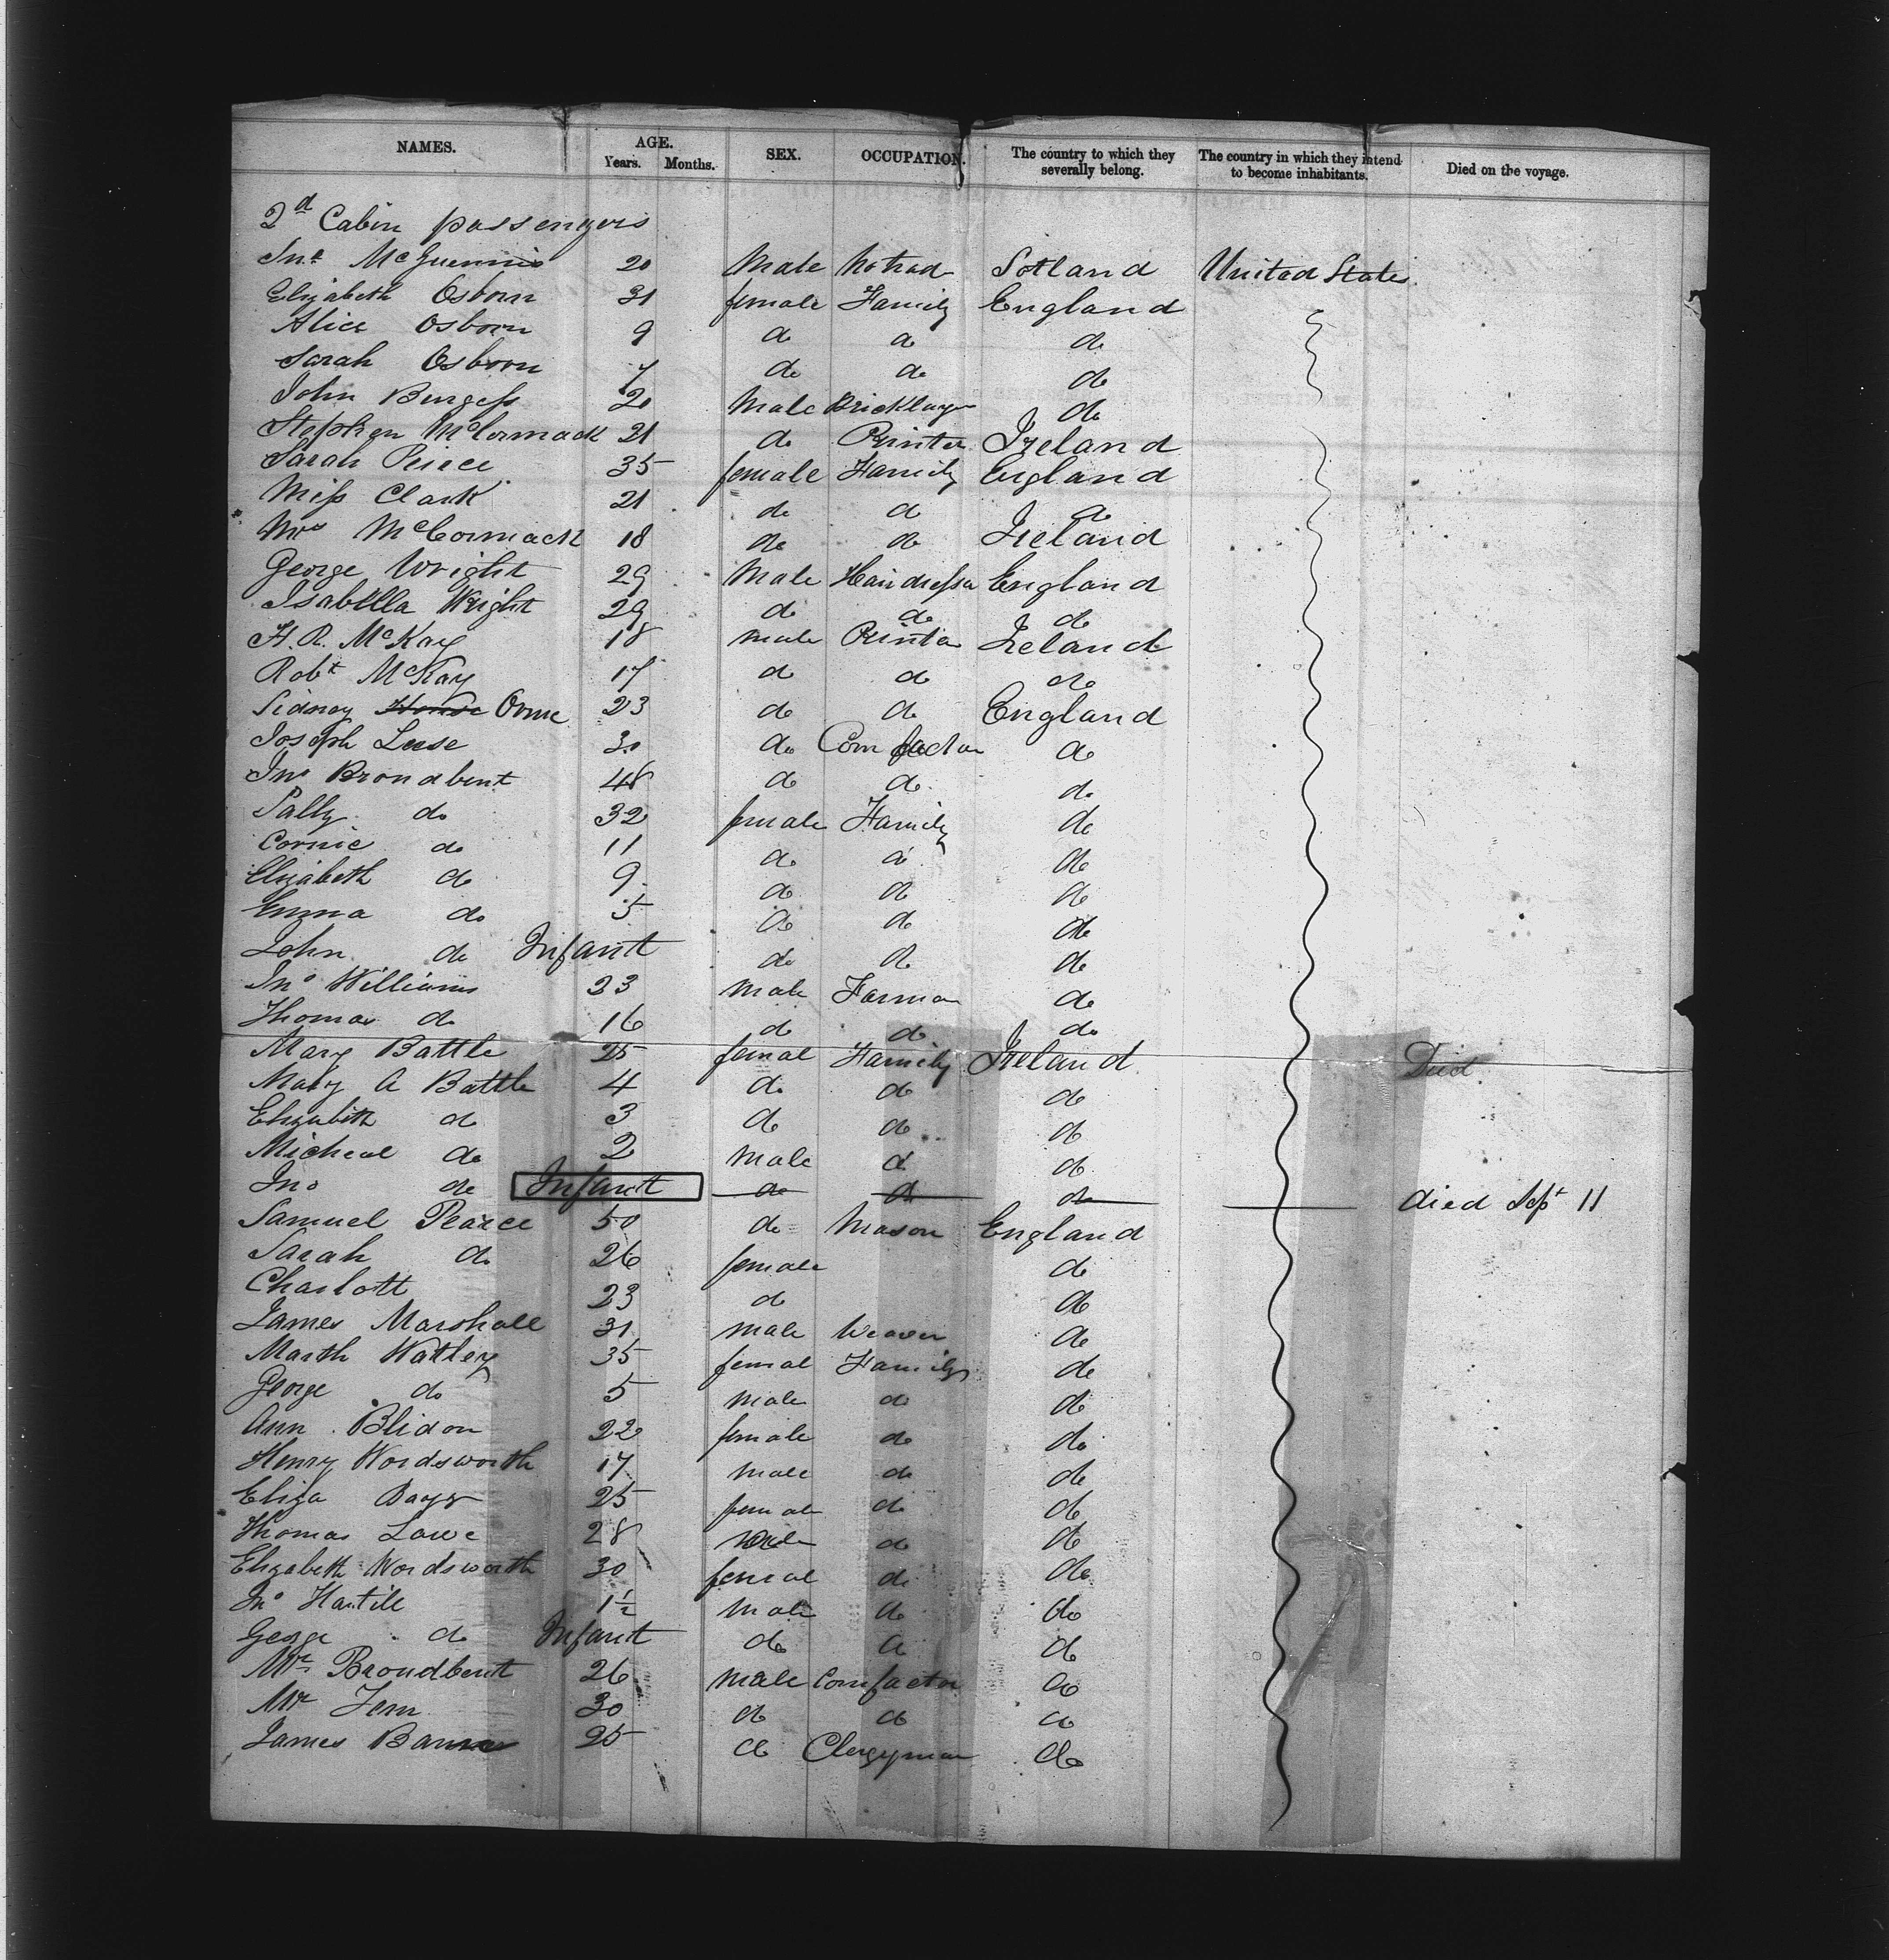 NAMES. AGE. Years. Months. SEX. OCCUPATION. The country to which they severally belong. The country in which they intend to become inhabitants. Died on the voyage.
2d Cabin passengers
Jno McGuennis 20 Male No trad Sotland United States
Elizabeth Osborn 31 female Family England
Alice Osborn 9 do do do
Sarah Osborn 7 do do do
John Burgess 20 Male Bricklayer do
Stephen McCormack 21 do Printer Ireland
Sarah Peirce 35 female Family England
Miss Clark 21 do do do
Mrs McCormack 18 do do Ireland
George Wright 29 Male Hairdresser England
Isabella Wright 29 do do do
H. R. McKay 18 male Printer Ireland
Robt McKay 17 do do do
Sidney Orme 23 do do England
Joseph Leese 30 do Corn factor do
Jno Broadbent 48 do do do
Sally do 32 female Family do
Cornie do 11 do do do
Elizabeth do 9 do do do
Emma do 5 do do do
John do Infant do do do
Jno Williams 23 Male Farmer do
Thomas do 16 do do do
Mary Battle 25 femal Family Ireland Died
Mary A Battle 4 do do do
Elizabeth do 3 do do do
Micheal do 2 Male do do
Jno do Infant do do do died Sept 11
Samuel Pearce 50 do Mason England
Sarah do 26 female do
Charlott 23 do do
James Marshall 31 male Weaver do
Marth Watley 35 femal Family do
George do 5 Male do do
Ann Blidon 22 female do do
Henry Wordsworth 17 Male do do
Eliza Bays 25 female do do
Thomas Lowe 28 Male do do
Elizabeth Wordsworth 30 femal do do
Jno Hartill 1½ Male do do
George do Infant do do do
Mr Broadbent 26 Male Cornfactor do
Mr Fern 30 do do do
James 25 do Clergyman do